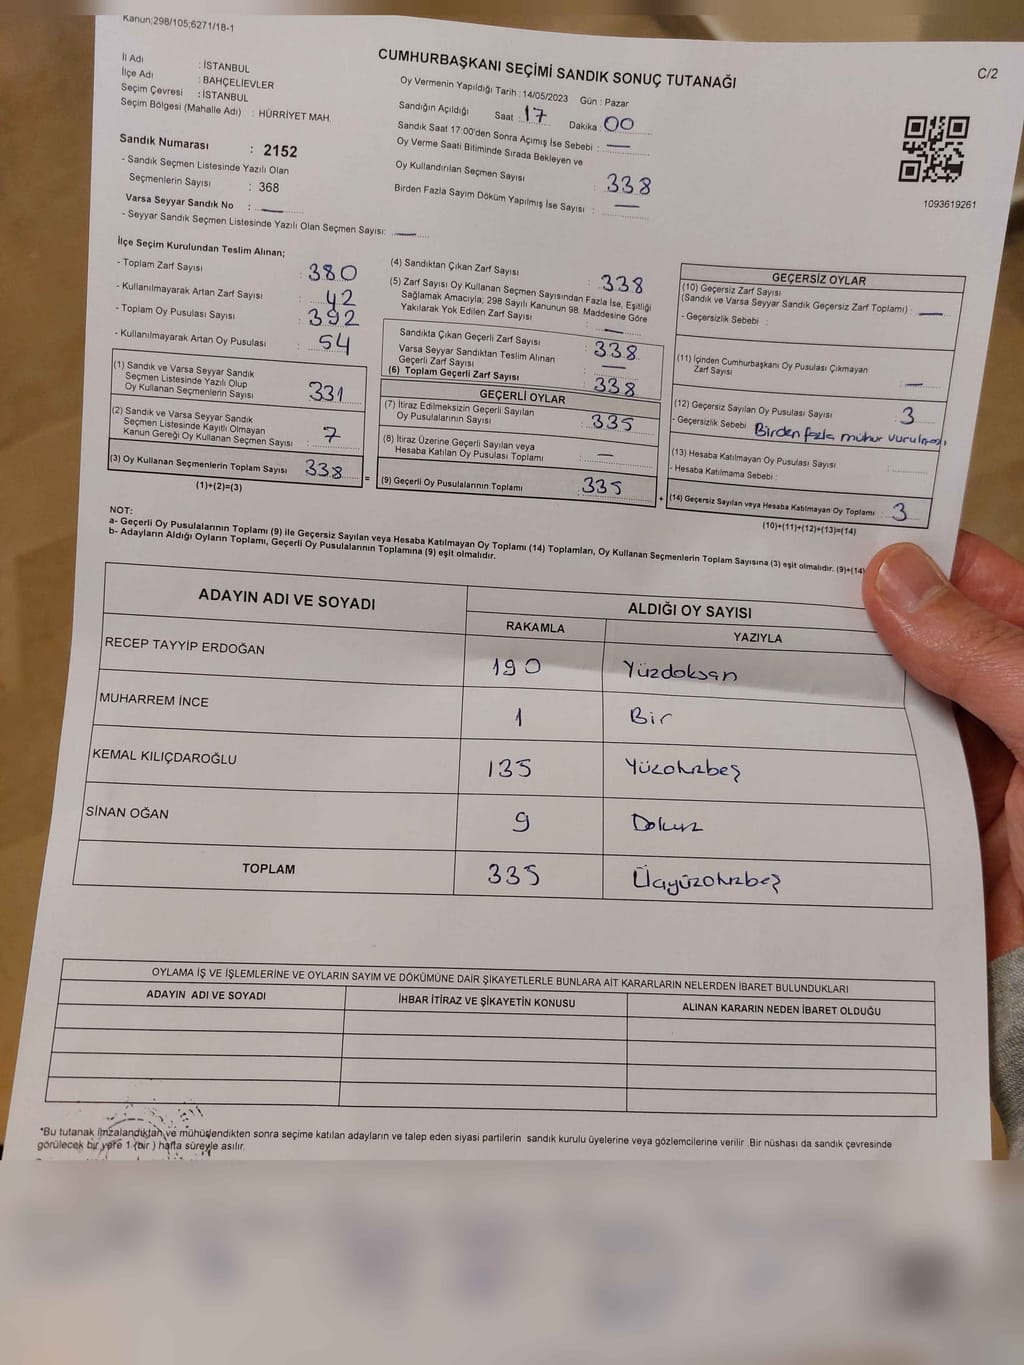 Kanun;298/105,6271/18-1
CUMHURBAŞKANI SEÇİMİ SANDIK SONUÇ TUTANAĞI
C/2
İl Adı : İSTANBUL
İlçe Adı : BAHÇELİEVLER
Seçim Çevresi : İSTANBUL
Seçim Bölgesi (Mahalle Adı) : HÜRRİYET MAH.
Sandık Numarası : 2152
- Sandık Seçmen Listesinde Yazılı Olan
Seçmenlerin Sayısı : 368
Varsa Seyyar Sandık No : —
- Seyyar Sandık Seçmen Listesinde Yazılı Olan Seçmen Sayısı: —
Oy Vermenin Yapıldığı Tarih : 14/05/2023 Gün : Pazar
Sandığın Açıldığı Saat : 17 Dakika : 00
Sandık Saat 17:00'den Sonra Açımış İse Sebebi : —
Oy Verme Saati Bitiminde Sırada Bekleyen ve
Oy Kullandırılan Seçmen Sayısı : 338
Birden Fazla Sayım Döküm Yapılmış İse Sayısı : —
1093619261
İlçe Seçim Kurulundan Teslim Alınan;
- Toplam Zarf Sayısı : 380
- Kullanılmayarak Artan Zarf Sayısı : 42
- Toplam Oy Pusulası Sayısı : 392
- Kullanılmayarak Artan Oy Pusulası : 54
(1) Sandık ve Varsa Seyyar Sandık
Seçmen Listesinde Yazılı Olup
Oy Kullanan Seçmenlerin Sayısı : 331
(2) Sandık ve Varsa Seyyar Sandık
Seçmen Listesinde Kayıtlı Olmayan
Kanun Gereği Oy Kullanan Seçmen Sayısı : 7
(3) Oy Kullanan Seçmenlerin Toplam Sayısı : 338
(1)+(2)=(3)
(4) Sandıktan Çıkan Zarf Sayısı : 338
(5) Zarf Sayısı Oy Kullanan Seçmen Sayısından Fazla İse, Eşitliği
Sağlamak Amacıyla; 298 Sayılı Kanunun 98. Maddesine Göre
Yakılarak Yok Edilen Zarf Sayısı : —
Sandıkta Çıkan Geçerli Zarf Sayısı : 338
Varsa Seyyar Sandıktan Teslim Alınan
Geçerli Zarf Sayısı : —
(6) Toplam Geçerli Zarf Sayısı : 338
=
GEÇERLİ OYLAR
(7) İtiraz Edilmeksizin Geçerli Sayılan
Oy Pusulalarının Sayısı : 335
(8) İtiraz Üzerine Geçerli Sayılan veya
Hesaba Katılan Oy Pusulası Toplamı : —
(9) Geçerli Oy Pusulalarının Toplamı : 335
+
GEÇERSİZ OYLAR
(10) Geçersiz Zarf Sayısı
(Sandık ve Varsa Seyyar Sandık Geçersiz Zarf Toplamı) : —
- Geçersizlik Sebebi :
(11) İçinden Cumhurbaşkanı Oy Pusulası Çıkmayan
Zarf Sayısı : —
(12) Geçersiz Sayılan Oy Pusulası Sayısı : 3
- Geçersizlik Sebebi Birden fazla mühür vurulması
(13) Hesaba Katılmayan Oy Pusulası Sayısı :
- Hesaba Katılmama Sebebi :
(14) Geçersiz Sayılan veya Hesaba Katılmayan Oy Toplamı : 3
(10)+(11)+(12)+(13)=(14)
NOT:
a- Geçerli Oy Pusulalarının Toplamı (9) ile Geçersiz Sayılan veya Hesaba Katılmayan Oy Toplamı (14) Toplamları, Oy Kullanan Seçmenlerin Toplam Sayısına (3) eşit olmalıdır. (9)+(14)
b- Adayların Aldığı Oyların Toplamı, Geçerli Oy Pusulalarının Toplamına (9) eşit olmalıdır.
ADAYIN ADI VE SOYADI ALDIĞI OY SAYISI
RAKAMLA YAZIYLA
RECEP TAYYİP ERDOĞAN 190 Yüzdoksan
MUHARREM İNCE 1 Bir
KEMAL KILIÇDAROĞLU 135 Yüzotuzbeş
SİNAN OĞAN 9 Dokuz
TOPLAM 335 Üçyüzotuzbeş
OYLAMA İŞ VE İŞLEMLERİNE VE OYLARIN SAYIM VE DÖKÜMÜNE DAİR ŞİKAYETLERLE BUNLARA AİT KARARLARIN NELERDEN İBARET BULUNDUKLARI
ADAYIN ADI VE SOYADI İHBAR İTİRAZ VE ŞİKAYETİN KONUSU ALINAN KARARIN NEDEN İBARET OLDUĞU
*Bu tutanak imzalandıktan ve mühürlendikten sonra seçime katılan adayların ve talep eden siyasi partilerin sandık kurulu üyelerine veya gözlemcilerine verilir .Bir nüshası da sandık çevresinde
görülecek bir yere 1 (bir ) hafta süreyle asılır.